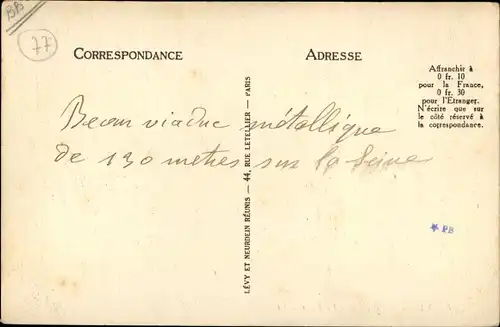 BB
77
CORRESPONDANCE
ADRESSE
Affranchir à
0 fr. 10
pour la France,
0 fr. 30
pour l'Étranger.
N'écrire que sur
le côté réservé à
la correspondance.
Beau viaduc métallique
de 130 metres sur la Seine
LÉVY ET NEURDEIN RÉUNIS — 44, RUE LETELLIER — PARIS
* PB